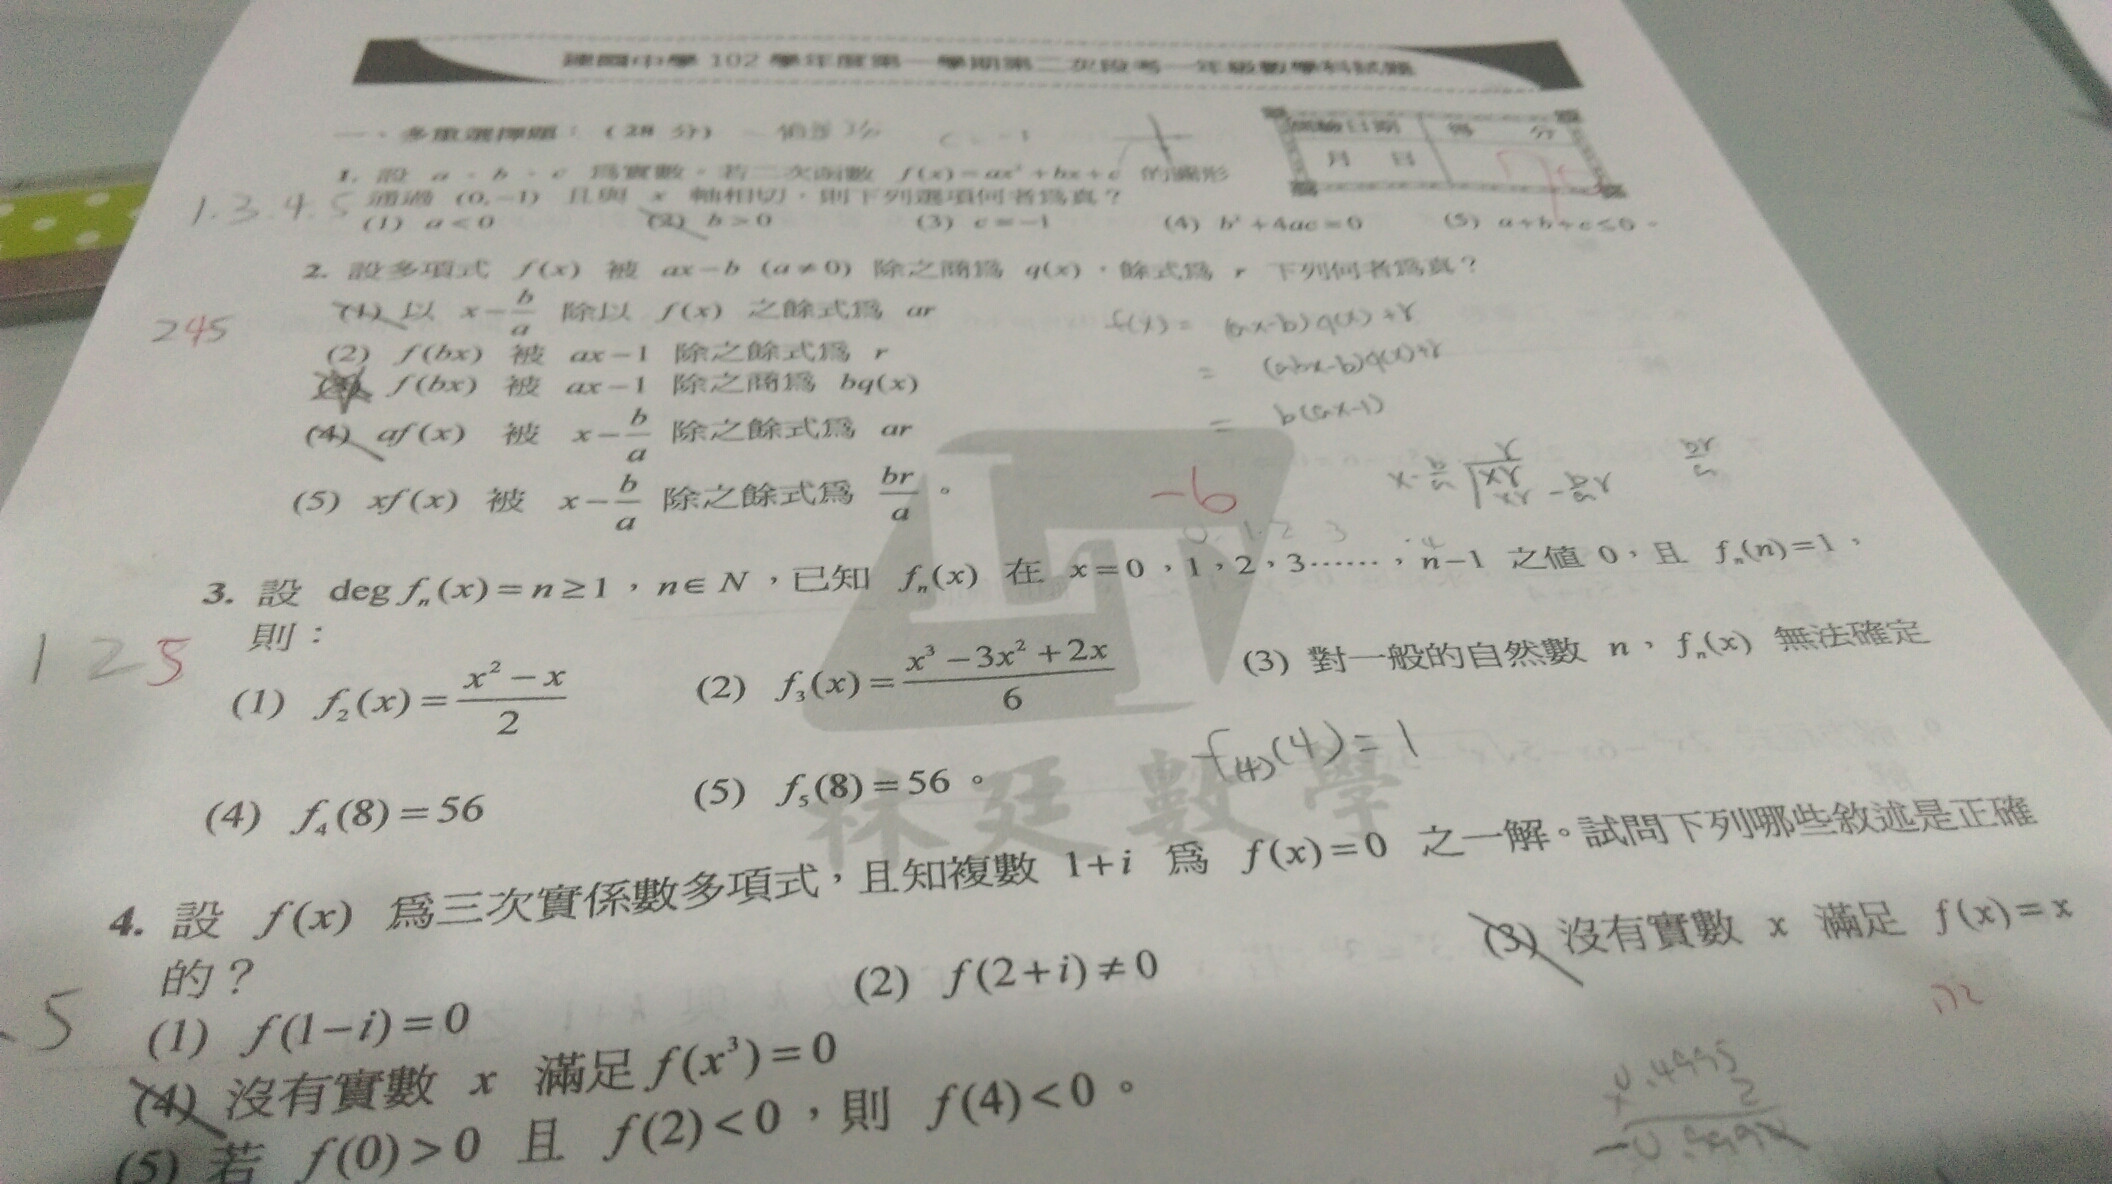 建國中學 102 學年度第一學期第二次段考一年級數學科試題
一、多重選擇題：(28 分)
c = -1
得 分
月 日
1. 設 a、b、c 為實數，若二次函數 f(x)=ax²+bx+c 的圖形
通過 (0,-1) 且與 x 軸相切，則下列選項何者為真？
1.3.4.5
(1) a<0 (2) b>0 (3) c=-1 (4) b²+4ac=0 (5) a+b+c≤0。
2. 設多項式 f(x) 被 ax-b (a≠0) 除之商為 q(x)，餘式為 r 下列何者為真？
245
(1) 以 x-b/a 除以 f(x) 之餘式為 ar
f(x) = (ax-b)q(x)+r
(2) f(bx) 被 ax-1 除之餘式為 r
= (abx-b)q(x)+r
(3) f(bx) 被 ax-1 除之商為 bq(x)
= b(ax-1)
(4) af(x) 被 x-b/a 除之餘式為 ar
(5) xf(x) 被 x-b/a 除之餘式為 br/a。
-6
0. 1. 2 3 4
3. 設 deg fₙ(x)=n≥1，n∈N，已知 fₙ(x) 在 x=0，1，2，3……，n-1 之值 0，且 fₙ(n)=1，
則：
1 2 5
(1) f₂(x)=(x²-x)/2 (2) f₃(x)=(x³-3x²+2x)/6 (3) 對一般的自然數 n，fₙ(x) 無法確定
(4) f₄(8)=56 (5) f₅(8)=56。
f(4)(4)=1
林廷數學
4. 設 f(x) 為三次實係數多項式，且知複數 1+i 為 f(x)=0 之一解。試問下列哪些敘述是正確
的？
5
(1) f(1-i)=0 (2) f(2+i)≠0 (3) 沒有實數 x 滿足 f(x)=x
(4) 沒有實數 x 滿足 f(x³)=0
(5) 若 f(0)>0 且 f(2)<0，則 f(4)<0。